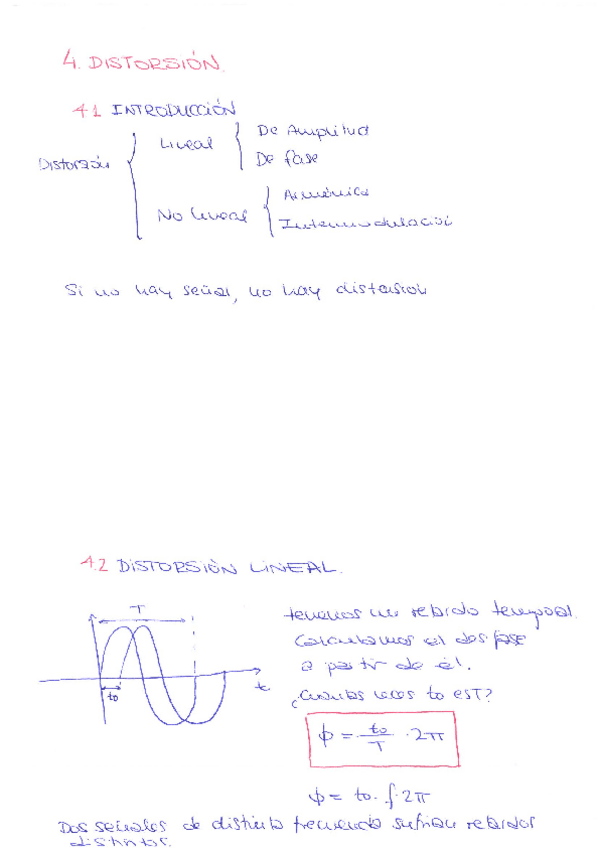 4. DISTORSIÓN.
4.1 INTRODUCCIÓN
Distorsión
Lineal
De Amplitud
De fase
No lineal
Armónica
Intermodulación
Si no hay señal, no hay distorsión
4.2 DISTORSIÓN LINEAL.
T
to
t
tenemos un retardo temporal.
Calculamos el desfase
a partir de él.
¿Cuántas veces to es T?
ϕ = to/T · 2π
ϕ = to · f · 2π
Dos señales de distinta frecuencia sufrirán retardos
distintos.